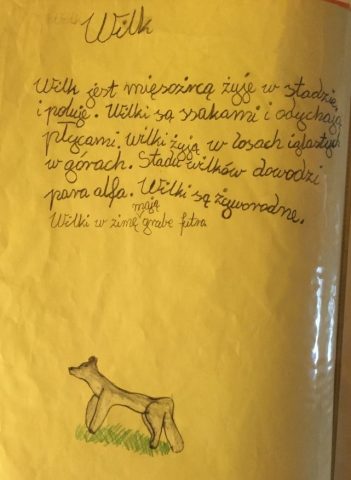 Wilk
Wilk jest mięsożercą żyje w stadzie
i poluje. Wilki są ssakami i odychają
płycami. wilki żyją w lasach iglastych
w górach. Stadu wilków dowodzi
para alfa. Wilki są żyworodne.
mają
Wilki w zimę grube futra